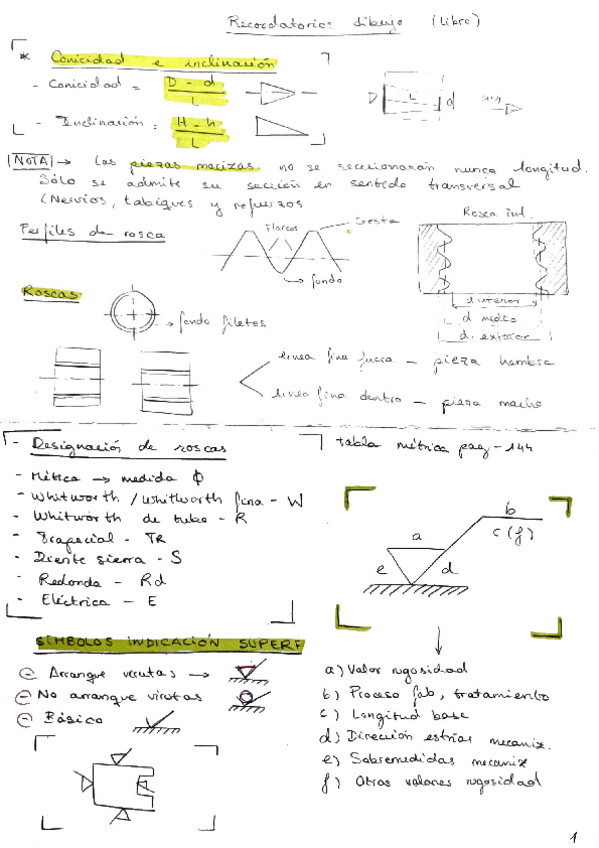 Recordatorios dibujo (Libro)
* Conicidad e inclinación
- Conicidad = D - d / L
D L d
- Inclinación = H - h / L
NOTA → Las piezas macizas no se seccionarán nunca longitud.
Sólo se admite su sección en sentido transversal
(Nervios, tabiques y refuerzos
Perfiles de rosca
Flancos
Cresta
Rosca int.
→ fondo
Roscas
→ fondo filetes
d interior
d medio
d. exterior
linea fina fuera - pieza hembra
linea fina dentro - pieza macho
- Designación de roscas
tabla métrica pag - 144
- Métrica → medida Φ
- Whitworth / Whitworth fina - W
- Whitworth de tubo - R
- Trapecial - TR
- Diente sierra - S
- Redonda - Rd
- Eléctrica - E
b
c (f)
a
e d
SÍMBOLOS INDICACIÓN SUPERF
- Arranque virutas →
- No arranque virutas
- Básico
a) Valor rugosidad
b) Proceso fab, tratamiento
c) Longitud base
d) Dirección estrías mecaniz.
e) Sobremedidas mecaniz
f) Otros valores rugosidad
1